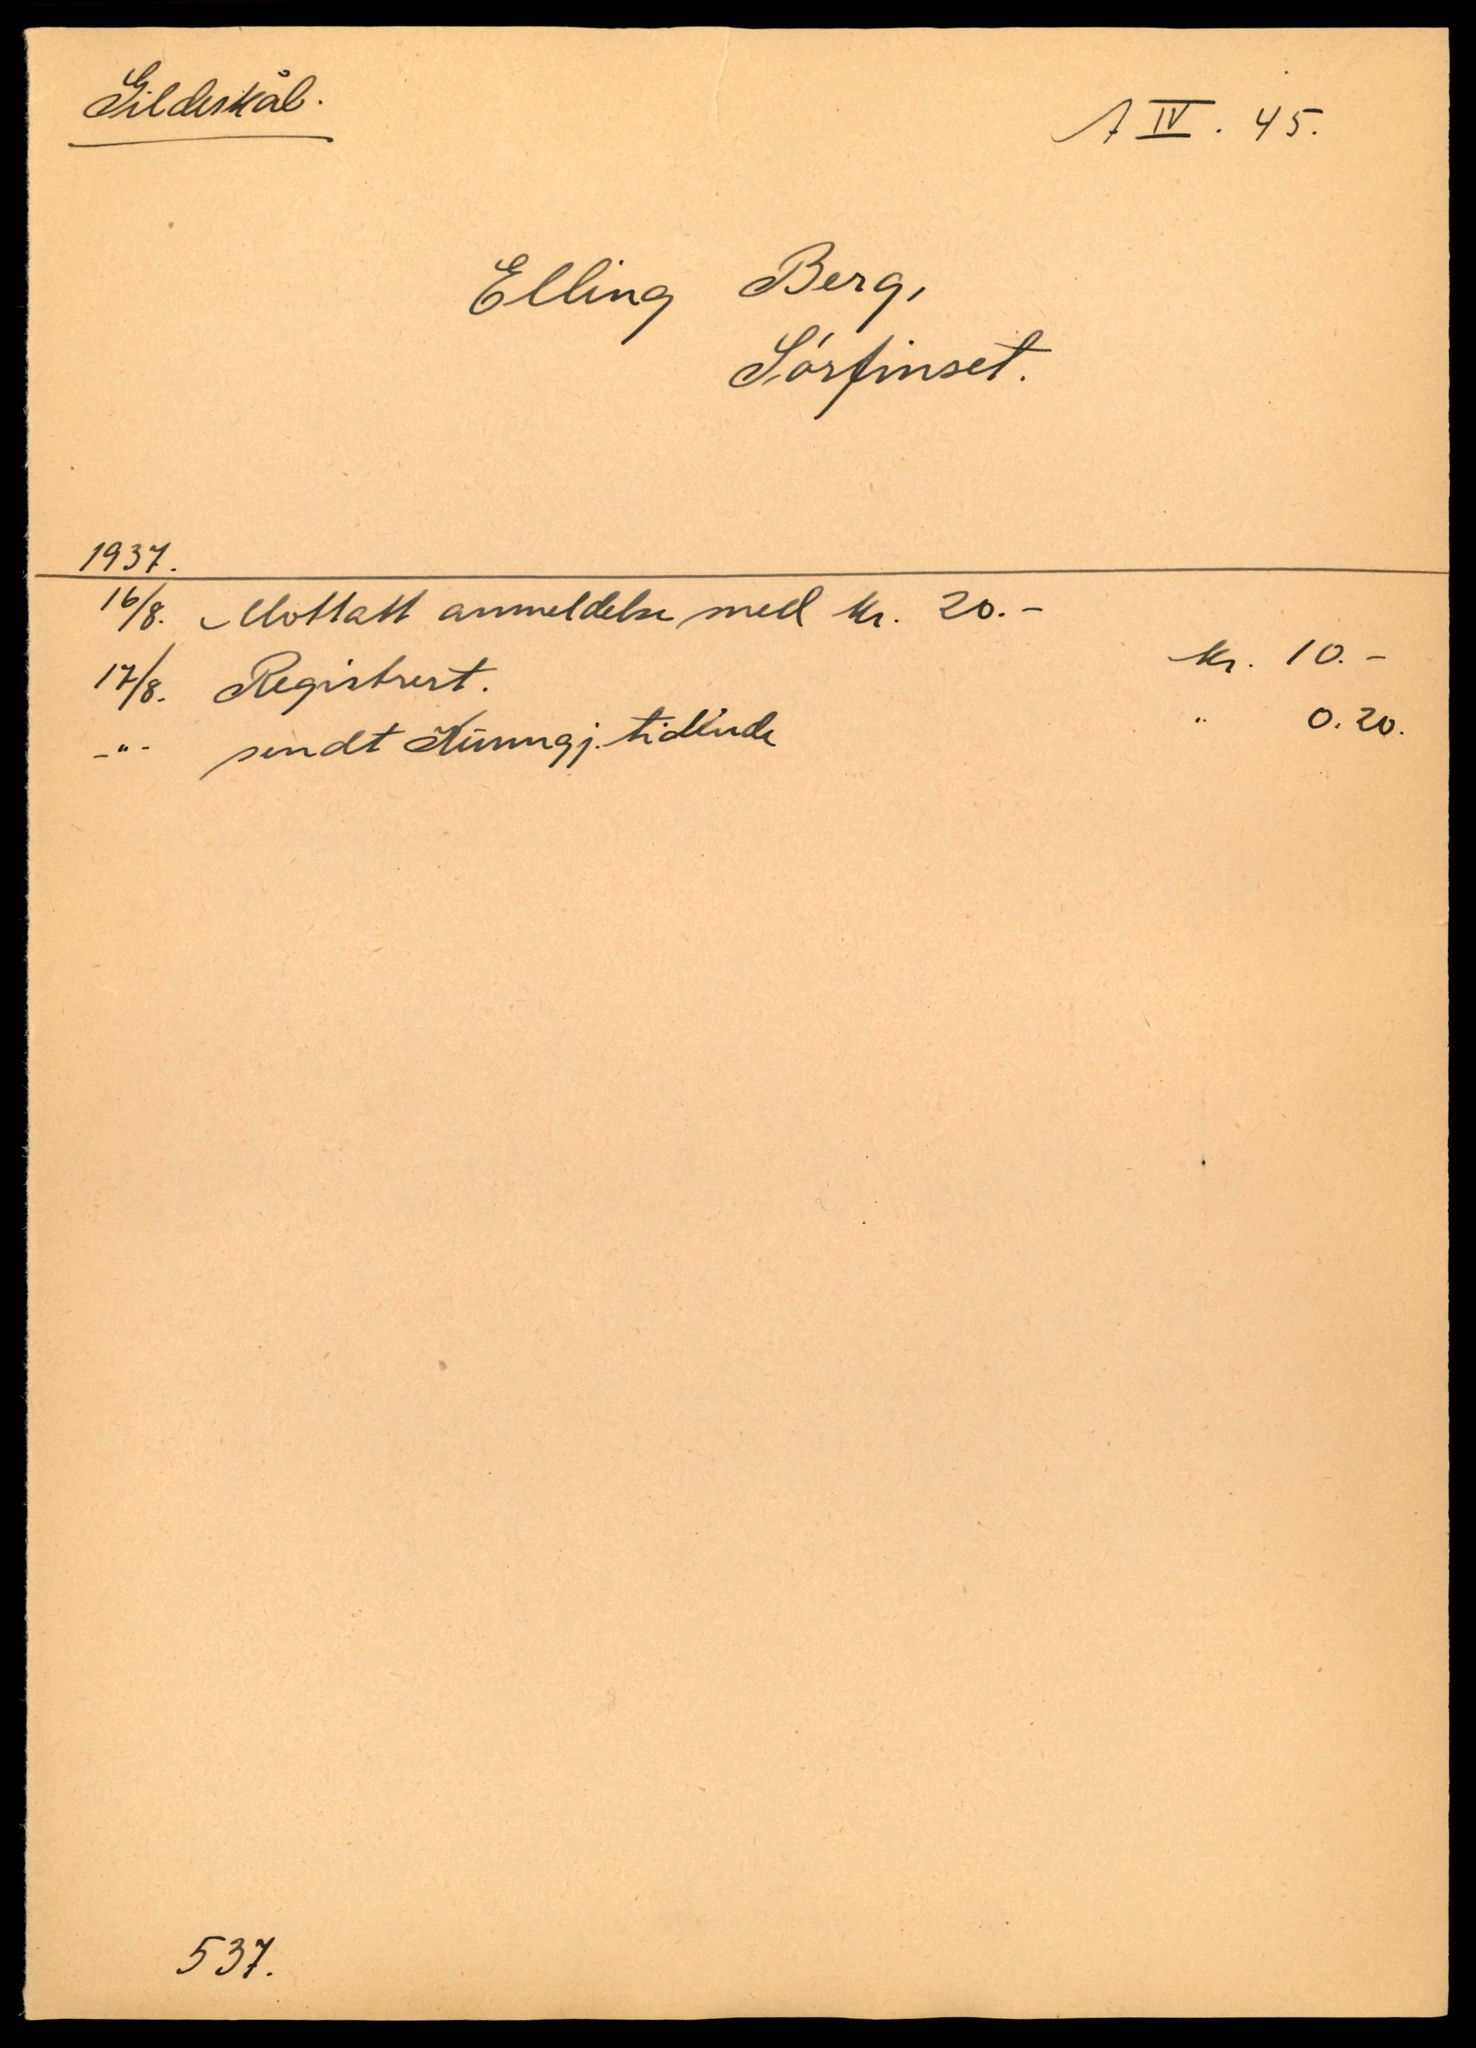 Gildeskål.
A IV. 45.
Elling Berg,
Sørfinset.
1937.
16/8. Mottatt anmeldelse med kr. 20.-
17/8. Registrert. kr. 10.-
-"- sendt Kunngj. tidende " 0.20.
537.